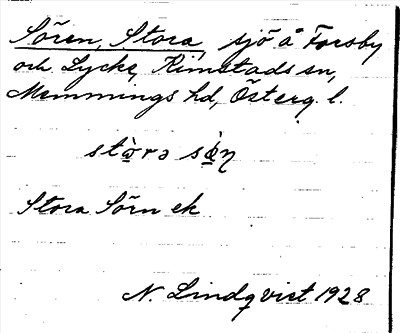 Sören, Stora, sjö å Forsby
och Lycke, Rimstads sn,
Memmings hd, Österg. l.
stò̠rə sò̠̣ṇ
Stora Sörn ek
N. Lindqvist 1928